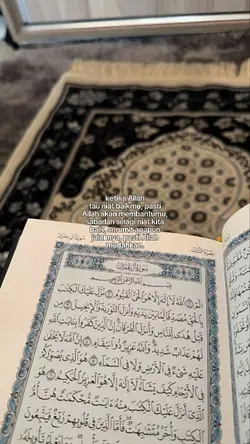 ketika Allah
tau niat baikmu, pasti
Allah akan membantumu,
sabarlah selagi niat kita
baik, serumit apapun
jalannya, pasti Allah
mudahkan.
الجزء الثالث
سورة آل عمران
سُورَةُ آلِ عِمْرَانَ
بِسْمِ اللَّهِ الرَّحْمَٰنِ الرَّحِيمِ
الٓمٓ ١ اللَّهُ لَا إِلَٰهَ إِلَّا هُوَ الْحَيُّ الْقَيُّومُ ٢ نَزَّلَ عَلَيْكَ الْكِتَٰبَ
بِالْحَقِّ مُصَدِّقًا لِمَا بَيْنَ يَدَيْهِ وَأَنْزَلَ التَّوْرَىٰةَ وَالْإِنْجِيلَ ٣ مِنْ
قَبْلُ هُدًى لِلنَّاسِ وَأَنْزَلَ الْفُرْقَانَ إِنَّ الَّذِينَ كَفَرُوا بِـَٔايَٰتِ اللَّهِ
لَهُمْ عَذَابٌ شَدِيدٌ وَاللَّهُ عَزِيزٌ ذُو انْتِقَامٍ ٤ إِنَّ اللَّهَ لَا يَخْفَىٰ
عَلَيْهِ شَيْءٌ فِي الْأَرْضِ وَلَا فِي السَّمَاءِ ٥ هُوَ الَّذِي يُصَوِّرُكُمْ
فِي الْأَرْحَامِ كَيْفَ يَشَاءُ لَا إِلَٰهَ إِلَّا هُوَ الْعَزِيزُ الْحَكِيمُ ٦ هُوَ
الَّذِي أَنْزَلَ عَلَيْكَ الْكِتَٰبَ مِنْهُ ءَايَٰتٌ مُحْكَمَٰتٌ هُنَّ أُمُّ
الْكِتَٰبِ وَأُخَرُ مُتَشَٰبِهَٰتٌ فَأَمَّا الَّذِينَ فِي قُلُوبِهِمْ زَيْغٌ فَيَتَّبِعُونَ